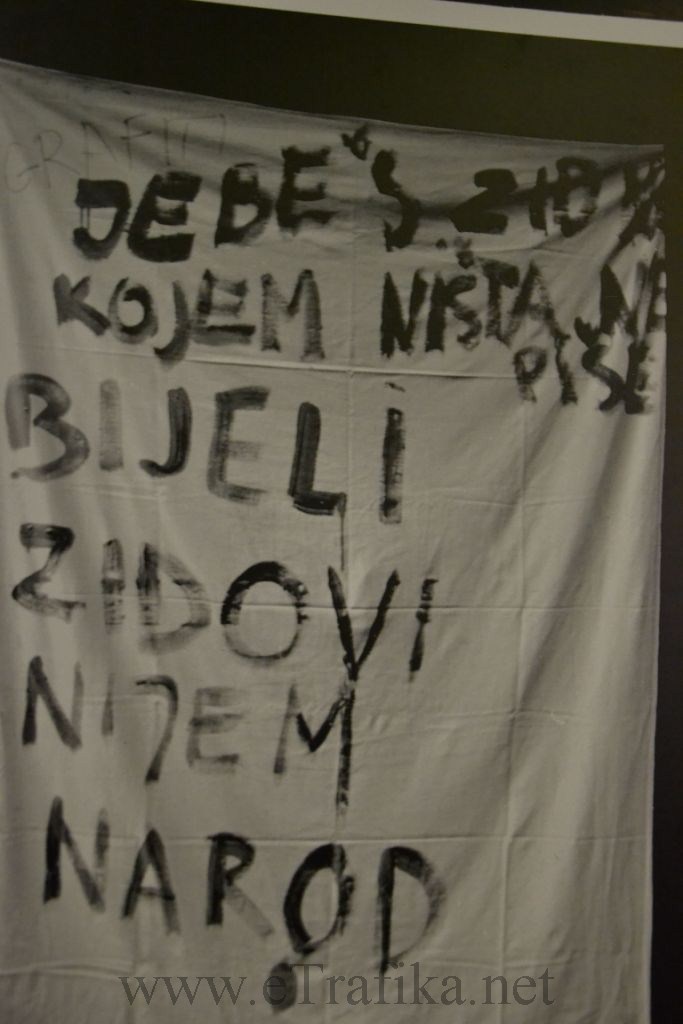 GRAFITI
JEBEŠ ZID NA
KOJEM NIŠTA NE
PIŠE
BIJELI
ZIDOVI
NIJEM
NAROD
www.eTrafika.net